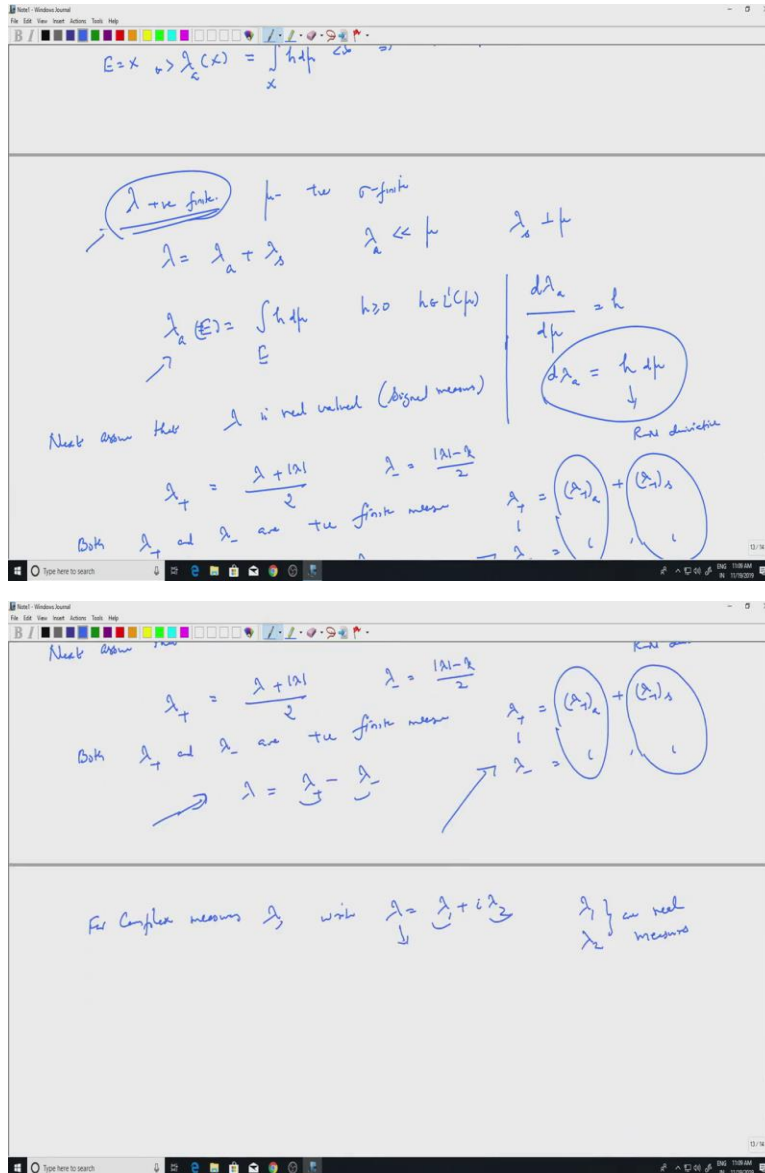 Note1 - Windows Journal
File Edit View Insert Actions Tools Help
E = X → λ_a(X) = ∫_X h dμ < ∞ ⇒
λ +ve finite. μ - +ve σ-finite
λ = λ_a + λ_s λ_a << μ λ_s ⊥ μ
λ_a(E) = ∫_E h dμ h ≥ 0 h ∈ L¹(μ) dλ_a/dμ = h
dλ_a = h dμ
Next assume that λ is real valued (Signed measure) R-N derivative
λ_+ = (λ + |λ|)/2 λ_- = (|λ| - λ)/2
Both λ_+ and λ_- are +ve finite measure λ_+ = (λ_+)_a + (λ_+)_s
λ_- =
13 / 14
Type here to search
ENG 11:09 AM
IN 11/19/2019
Note1 - Windows Journal
File Edit View Insert Actions Tools Help
Next assume
λ_+ = (λ + |λ|)/2 λ_- = (|λ| - λ)/2
Both λ_+ and λ_- are +ve finite measure λ_+ = (λ_+)_a + (λ_+)_s
λ = λ_+ - λ_- λ_- =
For Complex measures λ, write λ = λ_1 + i λ_2 λ_1 } are real
λ_2 measures
13 / 14
Type here to search
ENG 11:09 AM
IN 11/19/2019